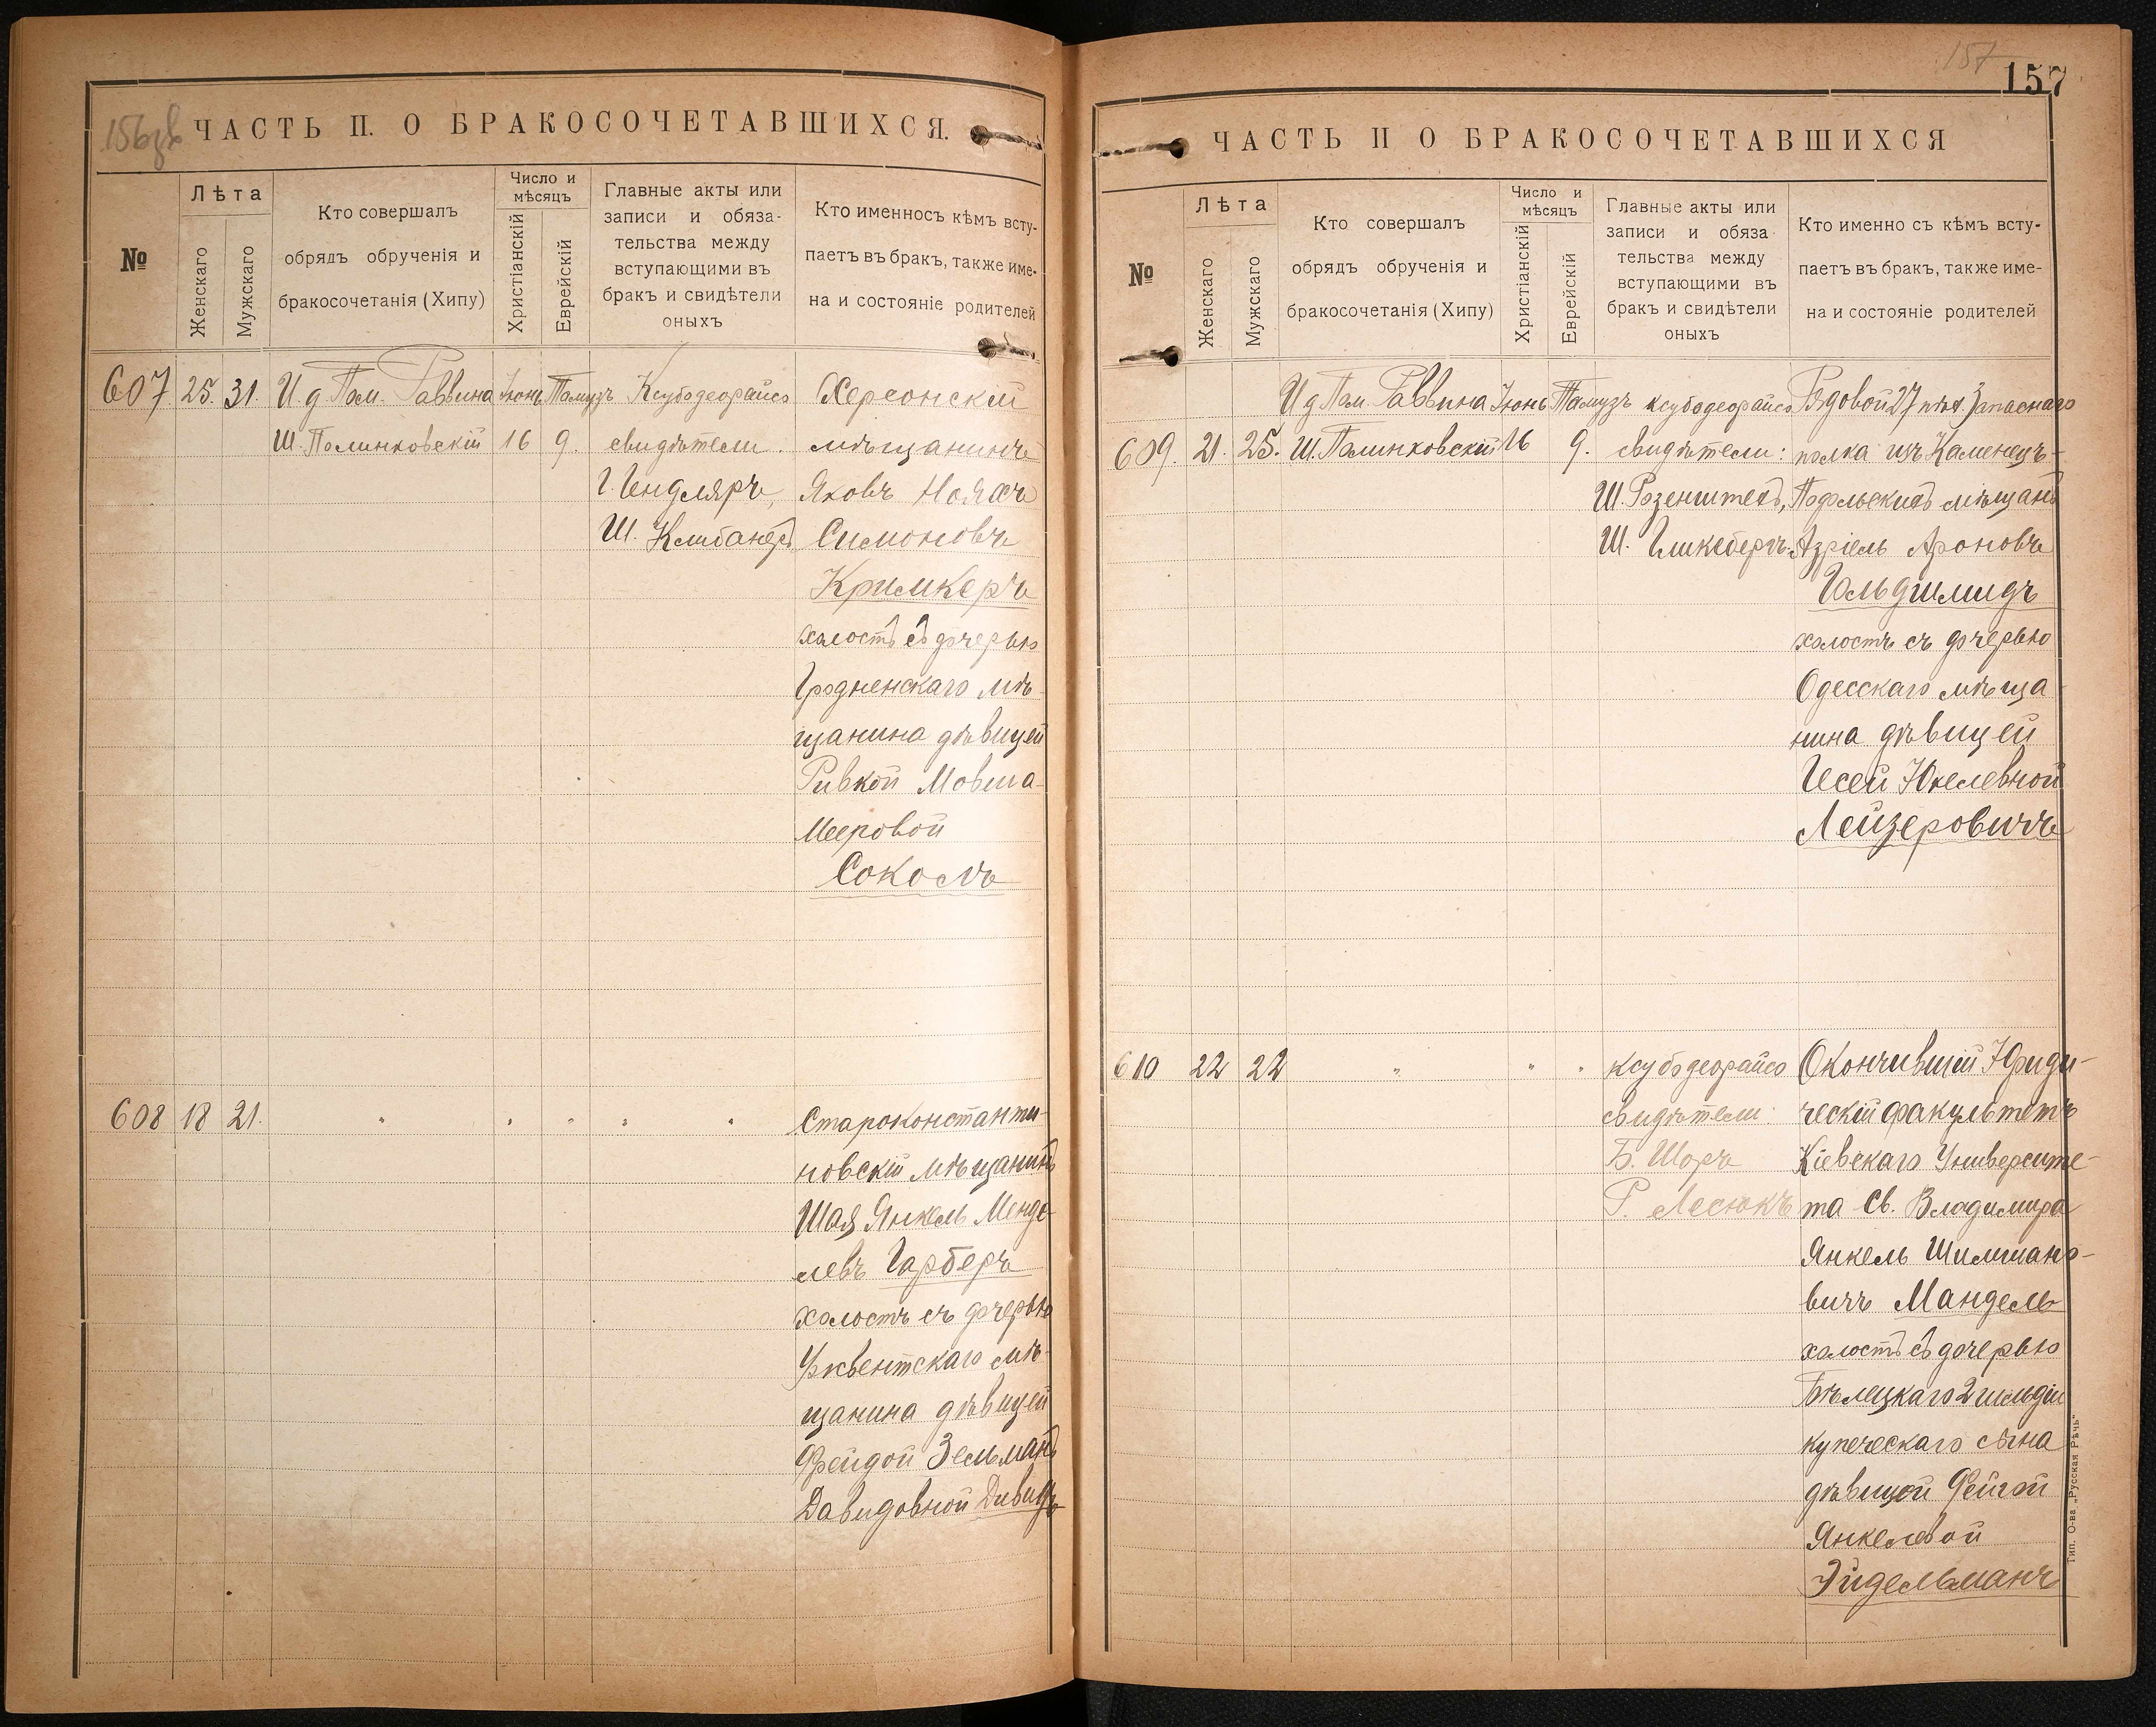 156об
ЧАСТЬ II. О БРАКОСОЧЕТАВШИХСЯ.
№
Лѣта
Женскаго
Мужскаго
Кто совершалъ
обрядъ обрученія и
бракосочетанія (Хипу)
Число и
мѣсяцъ
Христіанскій
Еврейскій
Главные акты или
записи и обяза-
тельства между
вступающими въ
бракъ и свидѣтели
оныхъ
Кто именносъ кѣмъ всту-
паетъ въ бракъ, также име-
на и состояніе родителей
607 25. 31. И д Пом. Раввина Іюнь Тамузъ Ксубодеорайсо Херсонскій
Ш. Полинковскій 16 9. свидѣтели. мѣщанинъ
Г. Гендляръ, Яковъ Ноахъ
Ш. Клибанеръ Симоновъ
Кримкеръ
холостъ съ дочерью
Гродненскаго мѣ-
щанина дѣвицей
Ривкой Мовша-
Мееровой
Соколъ
608 18 21. " " " " " Староконстанти-
новскій мѣщанинъ
Шая Янкель Менде-
левъ Гарберъ
холостъ съ дочерью
мѣ-
щанина дѣвицей
Фрейдой Зельманъ
Давидовной
157
157
ЧАСТЬ II О БРАКОСОЧЕТАВШИХСЯ
№
Лѣта
Женскаго
Мужскаго
Кто совершалъ
обрядъ обрученія и
бракосочетанія (Хипу)
Число и
мѣсяцъ
Христіанскій
Еврейскій
Главные акты или
записи и обяза
тельства между
вступающими въ
бракъ и свидѣтели
оныхъ
Кто именно съ кѣмъ всту-
паетъ въ бракъ, также име-
на и состояніе родителей
И д Пом. Раввина Іюнь Тамузъ ксубодеорайсо Рядовой 27 пѣх. Запаснаго
609. 21. 25. Ш. Полинковскій 16 9. свидѣтели: полка изъ Каменецъ-
Ш. Розенштейнъ, Подольскихъ мѣщанъ
Ш. Азріель Ароновъ
Гольдшмидъ
холостъ съ дочерью
Одесскаго мѣща
нина дѣвицей
Песей Юкелевной
Лейзеровичъ
610 22 22 " " " ксубодеорайсо Окончившій Юриди-
свидѣтели: ческій факультетъ
Б. Шоръ Кіевскаго Университе-
Р. Лесюкъ та Св. Владимира
Янкель Шилимано-
вичъ Мандель
холостъ съ дочерью
Бѣлецкаго 2 гильдіи
купеческаго сына
дѣвицей Фейгой
Янкелевой
Эйдельманъ
Тип. О-ва „Русская Рѣчь“